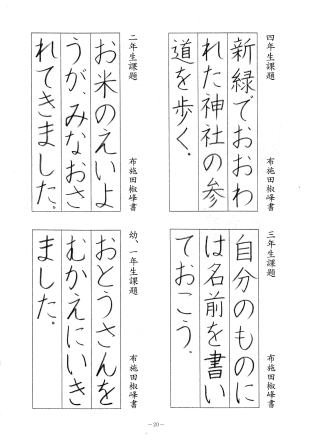 四年生課題
新緑でおおわ
れた神社の参
道を歩く。
布施田椒峰書
二年生課題
お米のえいよ
うがみなおさ
れてきました。
布施田椒峰書
三年生課題
自分のものに
は名前を書い
ておこう。
布施田椒峰書
幼、一年生課題
おとうさんを
むかえにいき
ました。
布施田椒峰書
－20－